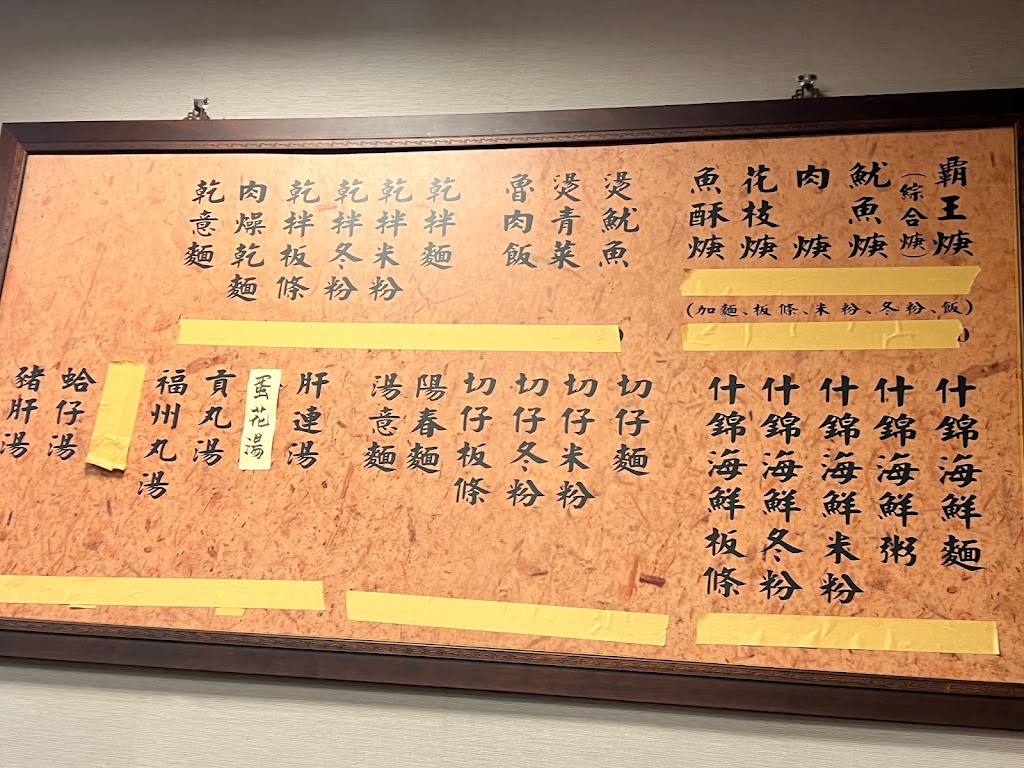 霸王焿
(綜合焿)
魷魚焿
肉焿
花枝焿
魚酥焿
(加麵、板條、米粉、冬粉、飯)
燙魷魚
燙青菜
魯肉飯
乾拌麵
乾拌米粉
乾拌冬粉
乾拌板條
肉燥乾麵
乾意麵
什錦海鮮麵
什錦海鮮粥
什錦海鮮米粉
什錦海鮮冬粉
什錦海鮮板條
切仔麵
切仔米粉
切仔冬粉
切仔板條
陽春麵
湯意麵
肝連湯
蛋花湯
貢丸湯
福州丸湯
蛤仔湯
豬肝湯